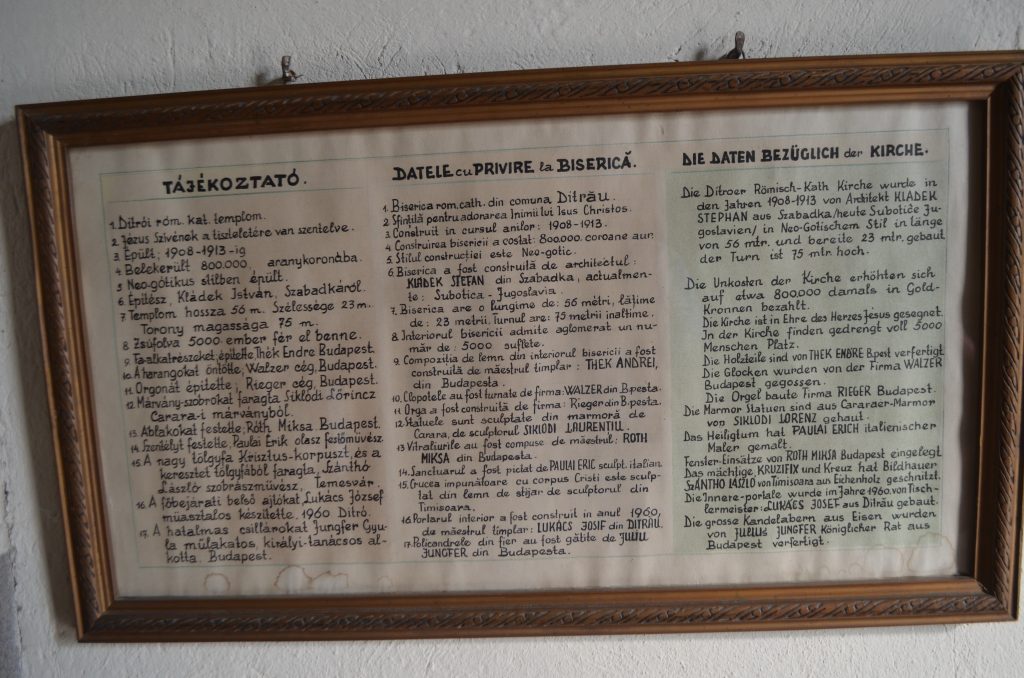 TÁJÉKOZTATÓ.
1. Ditrói róm. kat. templom.
2. Jézus Szivének a tiszteletére van szentelve.
3. Épült; 1908-1913-ig
4. Belekerült 800.000, aranykoronába.
5. Neo-gótikus stilben épült.
6. Épitész, Kládek István, Szabadkáról.
7. Templom hossza 56 m. Szélessége 23 m.
Torony magassága 75 m.
8. Zsúfolva 5000 ember fér el benne.
9. Fa-alkatrészeket épitette Thék Endre Budapest.
10. A harangokat öntötte, Walzer cég, Budapest.
11. Orgonát épitette, Rieger cég, Budapest.
12. Márvány-szobrokat faragta Siklódi Lőrincz
Carara-i márványból.
13. Ablakokat festette, Róth Miksa Budapest.
14. Szentélyt festette, Paulai Erik olasz festőművész
15. A nagy tölgyfa Krisztus-korpuszt, és a
keresztet tölgyfából faragta, Szánthó
László szobrászművész, Temesvár.
16. A főbejárati belső ajtókat Lukács József
műasztalos készitette, 1960 Ditró.
17. A hatalmas csillárokat Jungfer Gyu-
la műlakatos, királyi-tanácsos al-
kotta. Budapest.
DATELE cu PRIVIRE la BISERICĂ.
1. Biserica rom. cath. din comuna Ditrău.
2. Sfințită pentru adorarea Inimii lui Isus Christos.
3. Construit in cursul anilor: 1908-1913.
4. Construirea bisericii a costat: 800.000. coroane aur.
5. Stilul construcției este Neo-gotic.
6. Biserica a fost construită de architectul:
KLADEK ȘTEFAN din Szabadka, actualmen-
te: Subotica - Jugoslavia.
7. Biserica are o lungime de: 56 métri, lățime
de: 23 metrii. Turnul are: 75 metrii inaltime.
8. Interiorul bisericii admite aglomerat un nu-
măr de: 5000 suflete.
9. Compoziția de lemn din interiorul bisericii a fost
construită de măestrul timplar: THEK ANDREI,
din Budapesta.
10. Clopotele au fost turnate de firma: WALZER din B.pesta.
11. Orga a fost construită de firma: Rieger din B.pesta.
12. Statuele sunt sculptate din marmoră de
Carara, de sculptorul SIKLODI LAURENTIU.
13. Vitraliurile au fost compuse de măestrul: ROTH
MIKSA din Budapesta.
14. Sanctuarul a fost pictat de PAULAI ERIC sculpt. italian
15. Crucea impunătoare cu corpus Cristi este sculp-
tat din lemn de stijar de sculptorul din
Timisoara.
16. Portarul interior a fost construit in anul 1960,
de măestrul timplar: LUKÁCS JOSIF din DITRĂU.
17. Policandrele din fier au fost gătite de JULIU
JUNGFER din Budapesta.
DIE DATEN BEZÜGLICH der KIRCHE.
Die Ditroer Römisch-Kath Kirche wurde in
den Jahren 1908-1913 von Architekt KLADEK
STEPHAN aus Szabadka/heute Subotice Ju-
goslavien/ in Neo-Gotischem Stil in länge
von 56 mtr. und bereite 23 mtr. gebaut
der Turn ist 75 mtr. hoch.
Die Unkosten der Kirche erhöhten sich
auf etwa 800.000 damals in Gold-
Kronen bezahlt.
Die Kirche ist in Ehre des Herzes Jesus gesegnet.
In der Kirche finden gedrengt voll 5000
Menschen Platz.
Die Holzteile sind von THEK ENDRE B.pest verfertigt
Die Glocken wurden von der Firma WALZER
Budapest gegossen.
Die Orgel baute Firma RIEGER Budapest.
Die Marmor Statuen sind aus Cararaer-Marmor
von SIKLODI LORENZ gehaut.
Das Heiligtum hat PAULAI ERICH italienischer
Maler gemalt.
Fenster-Einsätze von ROTH MIKSA Budapest eingelegt
Das mächtige KRUZIFIX und Kreuz hat Bildhauer
SZÁNTHO LASZLO von Timisoara aus Eichenholz geschnitzt.
Die Innere-portale wurde im Jahre 1960. von Tisch-
lermeister: LUKÁCS JOSEF aus Ditrău gebaut.
Die grosse Kandelabern aus Eisen wurden
von JULIUS JUNGFER Königlicher Rat aus
Budapest verfertigt.